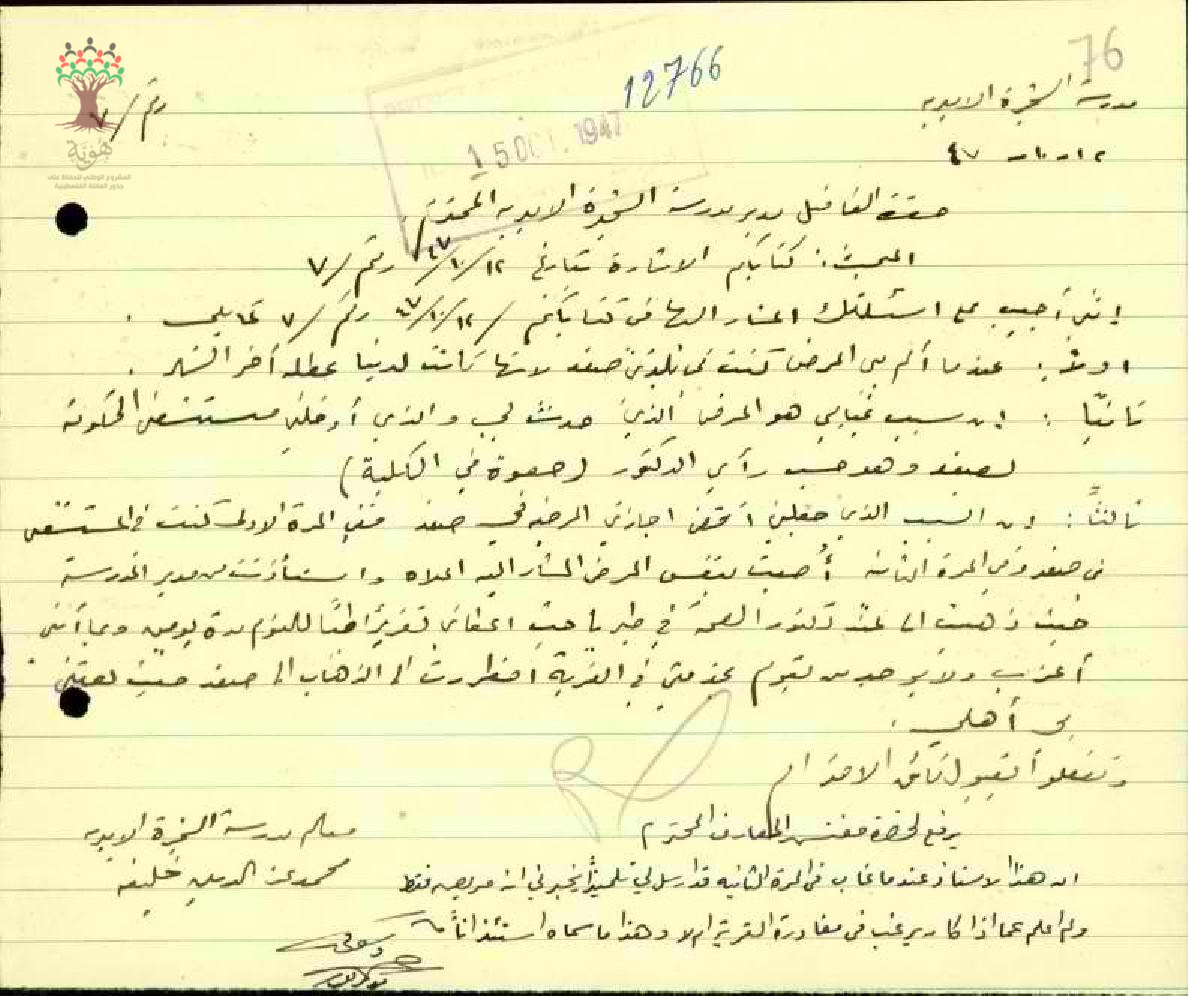 76
12766
مدرسة الشجرة الاميرية
رقم / ٧
15 OCT. 1947
هوية
المشروع الوطني للحفاظ على
جذور العائلة الفلسطينية
حضرة الفاضل مدير مدرسة الشجرة الاميرية المحترم
المبحث: كتابكم الاشارة بتاريخ ١٢/١٠/٤٧ رقم / ٧
إنني أجيب على اسئلتك المشار اليها في كتابكم / ١٢/١٠/٤٧ رقم / ٧ بما يلي .
اولاً : عندما ألم بي المرض كنت في صفد لانها كانت لدينا عطلة أخر الشهر .
ثانيًا : إن سبب غيابي هو المرض الذي حدث لي والذي أدخلني مستشفى الحكومة
بصفد وهو حسب رأي الدكتور (حصوة في الكلية)
ثالثاً : إن السبب الذي جعلني اقضي اجازتي المرضيه في صفد ففي المرة الاولى كنت في المستشفى
في صفد وفي المرة الثانية أُصبت بنفس المرض المشار اليه اعلاه واستأذنت من مدير المدرسة
حيث ذهبت الى عند دكتور الصحة في طبريا حيث اعطاني تقريرًا طبيًا للنوم مدة يومين وبما أنني
أعزب ولا يوجد من يقوم بخدمتي في القرية اضطررت الى الذهاب الى صفد حيث يعتني
بي أهلي .
وتفضلوا بقبول فائق الاحترام
معلم مدرسة الشجرة الاميرية
محمد عز الدين خليفه
يرفع لحضرة مفتش المعارف المحترم
ان هذا الاستاذ عندما غاب في المرة الثانيه قد ارسل لي تلميذاً يخبرني انه مريض فقط
ولم اعلم عما اذا كان يرغب في مغادرة القرية ام لا وهذا ما سماه استئذاناً